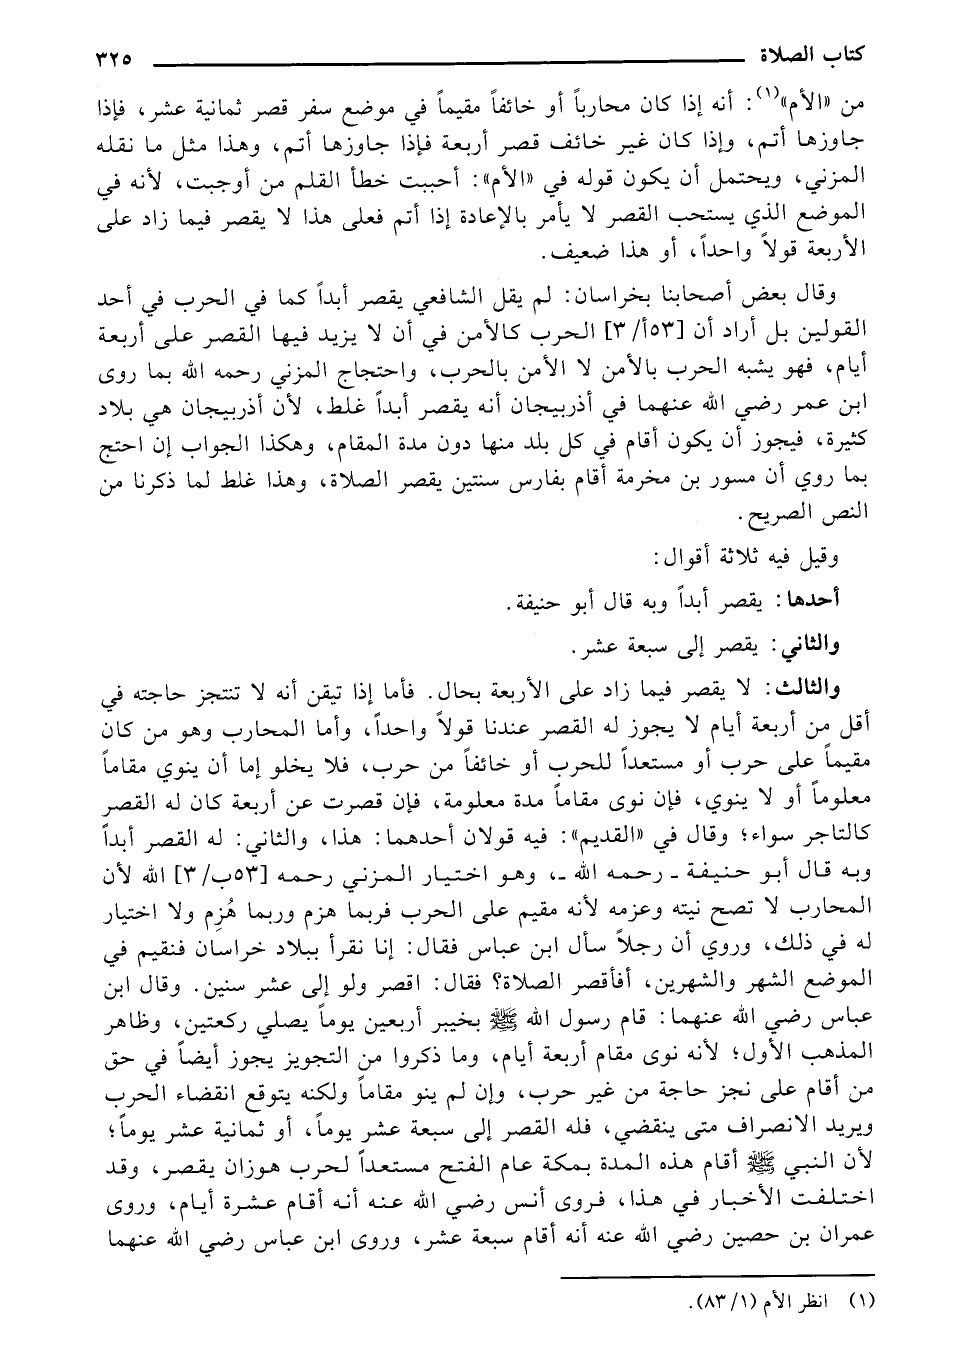 كتاب الصلاة ٣٢٥
من «الأم»(١): أنه إذا كان محارباً أو خائفاً مقيماً في موضع سفر قصر ثمانية عشر، فإذا
جاوزها أتم، وإذا كان غير خائف قصر أربعة فإذا جاوزها أتم، وهذا مثل ما نقله
المزني، ويحتمل أن يكون قوله في «الأم»: أحببت خطأ القلم من أوجبت، لأنه في
الموضع الذي يستحب القصر لا يأمر بالإعادة إذا أتم فعلى هذا لا يقصر فيما زاد على
الأربعة قولاً واحداً، أو هذا ضعيف.
وقال بعض أصحابنا بخراسان: لم يقل الشافعي يقصر أبداً كما في الحرب في أحد
القولين بل أراد أن [٥٣أ/ ٣] الحرب كالأمن في أن لا يزيد فيها القصر على أربعة
أيام، فهو يشبه الحرب بالأمن لا الأمن بالحرب، واحتجاج المزني رحمه الله بما روى
ابن عمر رضي الله عنهما في أذربيجان أنه يقصر أبداً غلط، لأن أذربيجان هي بلاد
كثيرة، فيجوز أن يكون أقام في كل بلد منها دون مدة المقام، وهكذا الجواب إن احتج
بما روي أن مسور بن مخرمة أقام بفارس سنتين يقصر الصلاة، وهذا غلط لما ذكرنا من
النص الصريح.
وقيل فيه ثلاثة أقوال:
أحدها: يقصر أبداً وبه قال أبو حنيفة.
والثاني: يقصر إلى سبعة عشر.
والثالث: لا يقصر فيما زاد على الأربعة بحال. فأما إذا تيقن أنه لا تنتجز حاجته في
أقل من أربعة أيام لا يجوز له القصر عندنا قولاً واحداً، وأما المحارب وهو من كان
مقيماً على حرب أو مستعداً للحرب أو خائفاً من حرب، فلا يخلو إما أن ينوي مقاماً
معلوماً أو لا ينوي، فإن نوى مقاماً مدة معلومة، فإن قصرت عن أربعة كان له القصر
كالتاجر سواء؛ وقال في «القديم»: فيه قولان أحدهما: هذا، والثاني: له القصر أبداً
وبه قال أبو حنيفة ـ رحمه الله ـ، وهو اختيار المزني رحمه [٥٣ب/ ٣] الله لأن
المحارب لا تصح نيته وعزمه لأنه مقيم على الحرب فربما هزم وربما هُزِم ولا اختيار
له في ذلك، وروي أن رجلاً سأل ابن عباس فقال: إنا نقرأ ببلاد خراسان فنقيم في
الموضع الشهر والشهرين، أفأقصر الصلاة؟ فقال: اقصر ولو إلى عشر سنين. وقال ابن
عباس رضي الله عنهما: قام رسول الله ﷺ بخيبر أربعين يوماً يصلي ركعتين، وظاهر
المذهب الأول؛ لأنه نوى مقام أربعة أيام، وما ذكروا من التجويز يجوز أيضاً في حق
من أقام على نجز حاجة من غير حرب، وإن لم ينو مقاماً ولكنه يتوقع انقضاء الحرب
ويريد الانصراف متى ينقضي، فله القصر إلى سبعة عشر يوماً، أو ثمانية عشر يوماً؛
لأن النبي ﷺ أقام هذه المدة بمكة عام الفتح مستعداً لحرب هوزان يقصر، وقد
اختلفت الأخبار في هذا، فروى أنس رضي الله عنه أنه أقام عشرة أيام، وروى
عمران بن حصين رضي الله عنه أنه أقام سبعة عشر، وروى ابن عباس رضي الله عنهما
(١) انظر الأم (٨٣/١).